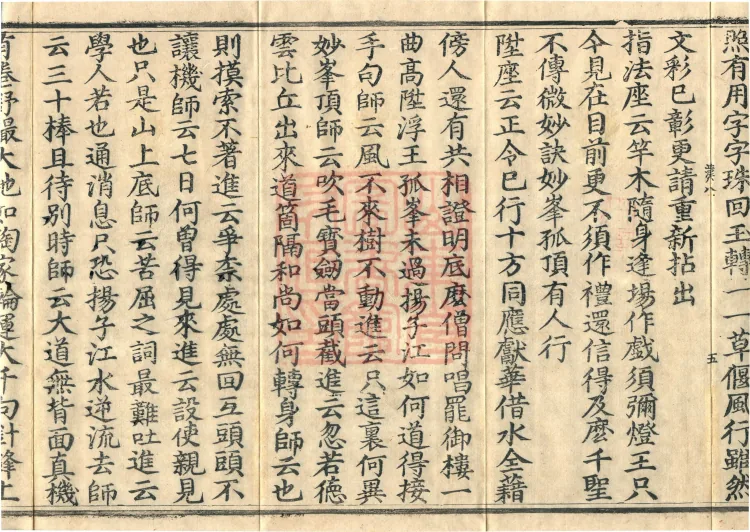 照有用字字珠回玉轉一一草偃風行雖然
文彩已彰更請重新拈出
指法座云竿木隨身逢場作戲須彌燈王只
今見在目前更不須作禮還信得及麼千聖
不傳微妙訣妙峯孤頂有人行
陞座云正令已行十方同應獻華借水全藉
傍人還有共相證明底麼僧問唱罷御樓一
曲高陞浮王孤峯未過揚子江如何道得接
手句師云風不來樹不動進云只這裏何異
妙峯頂師云吹毛寶劒當頭截進云忽若德
雲比丘出來道箇隔和尚如何轉身師云也
則摸索不著進云爭柰處處無回互頭頭不
讓機師云七日何曾得見來進云設使親見
也只是山上底師云苦屈之詞最難吐進云
學人若也通消息只恐揚子江水逆流去師
云三十棒且待別時師云大道無背面真機
有卷舒最大地如陶家輪運大千向針鋒上
五